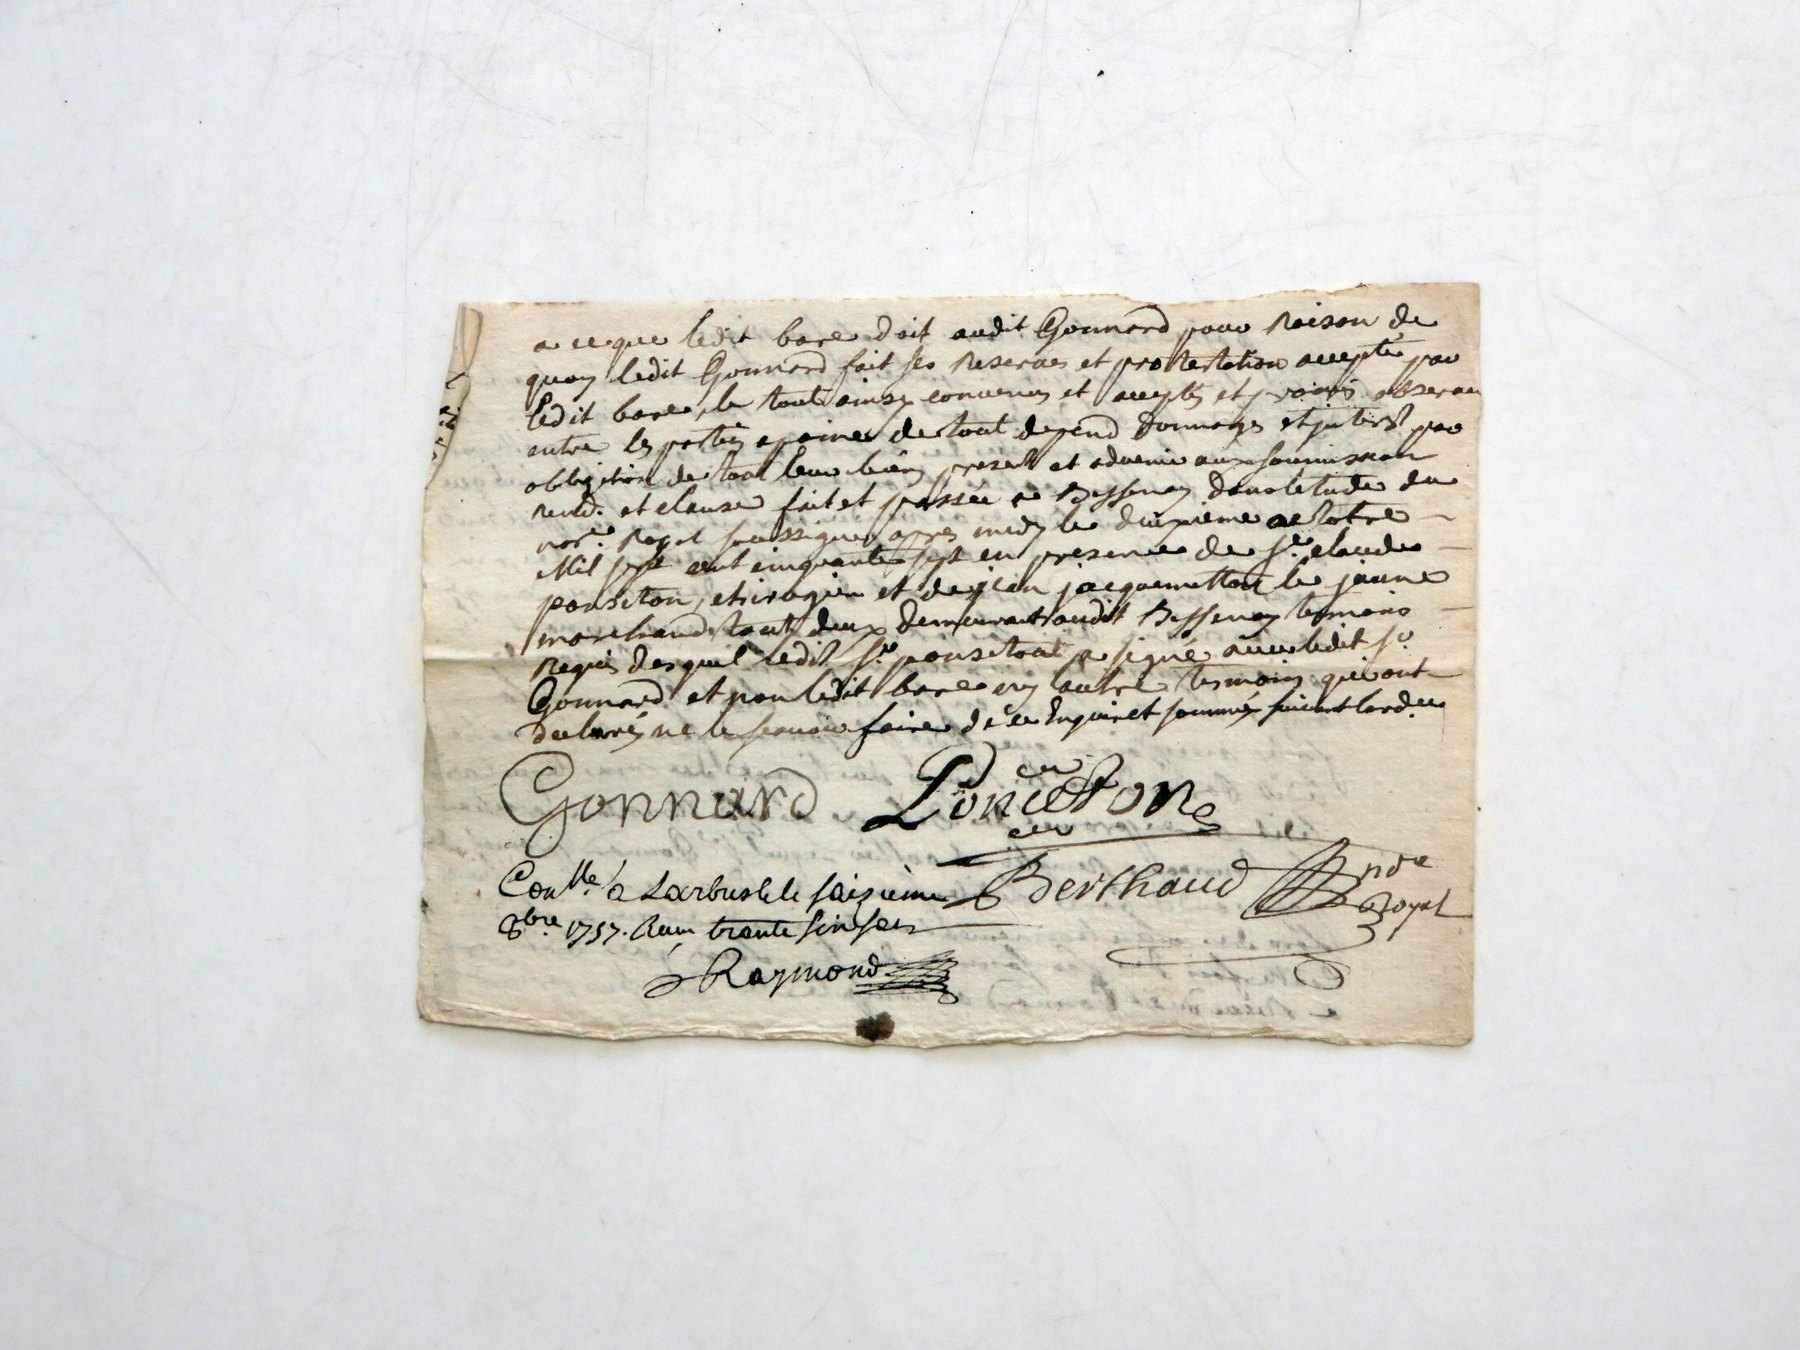 a ce que ledit bare doit audit Gonnard pour Raison de
quoy ledit Gonnard fait ses Reserves et protestation accepté par
ledit bare, le tout ainsy convenus et acceptés et promis observer
entre les parties a paine de tout depend dommages et interest par
obligation de tout leur biens present et advenir aux soumission
rend.on et clause fait et passée a Bessenay dans letude du
nore. Royal soussigné apres midy le deuxieme octobre
Mil sept cent cinquante sept en presence de Sr. claude
ponseton, chirugien et de jean jacquemetton le jeune
marchand tout deux demeurant audit Bessenay temoins
Requis desquel ledit Sr. ponsetont a signé avec ledit Sr.
Gonnard et non ledit bare ny autre temoins qui ont
declarés ne le scavoir faire de ce Enquis et sommés suivant lord.ce
Gonnard Ponceton
Conlle. a Larbusle le saizieme
8bre 1757. Reçu trante sin sols
Berthaud nore
Royal
Raymond